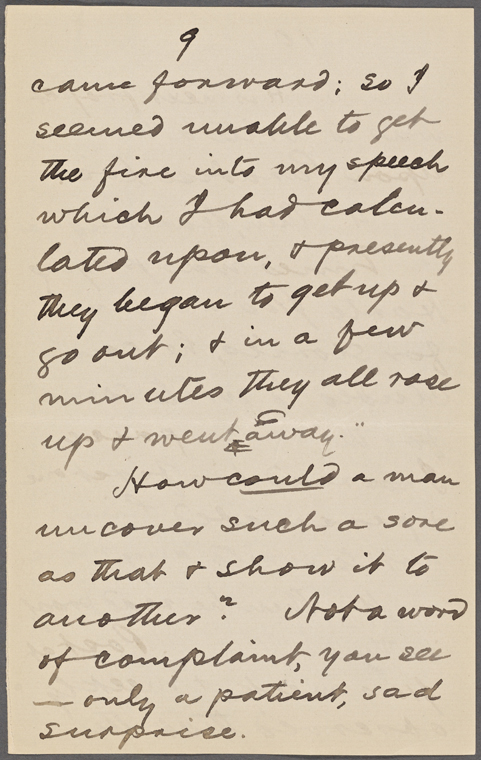 9
came forward; so I
seemed unable to get
the fire into my speech
which I had calcu-
lated upon, & presently
they began to get up &
go out; & in a few
minutes they all rose
up & went away."
How could a man
uncover such a sore
as that & show it to
another? Not a word
of complaint, you see
— only a patient, sad
surprise.